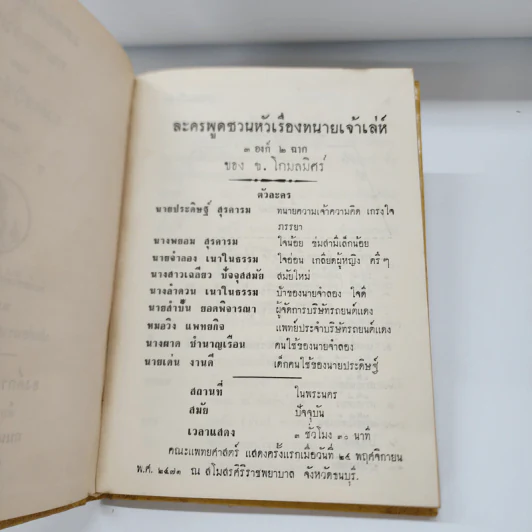 ละครพูดชวนหัวเรื่องทนายเจ้าเล่ห์
๓ องก์ ๒ ฉาก
ของ ข. โกมลมิศร์
ตัวละคร
นายประดิษฐ์ สุรดารม ทนายความเจ้าความคิด เกรงใจ
ภรรยา
นางพยอม สุรดารม ใจน้อย ข่มสามีเล็กน้อย
นายจำลอง เนาในธรรม ใจอ่อน เกลียดผู้หญิง ครึ ๆ
นางสาวเฉลียว ปัจจุสสมัย สมัยใหม่
นางลำดวน เนาในธรรม ป้าของนายจำลอง ใจดี
นายสำบั้น ยอดพิจารณา ผู้จัดการบริษัทรถยนต์แดง
หมอวิง แพทยกิจ แพทย์ประจำบริษัทรถยนต์แดง
นางผาด ชำนาญเรือน คนใช้ของนายจำลอง
นายเด่น งานดี เด็กคนใช้ของนายประดิษฐ์
สถานที่ ในพระนคร
สมัย ปัจจุบัน
เวลาแสดง ๓ ชั่วโมง ๓๐ นาที
คณะแพทยศาสตร์ แสดงครั้งแรกเมื่อวันที่ ๒๕ พฤศจิกายน
พ.ศ. ๒๔๘๑ ณ สโมสรศิริราชพยาบาล จังหวัดธนบุรี.